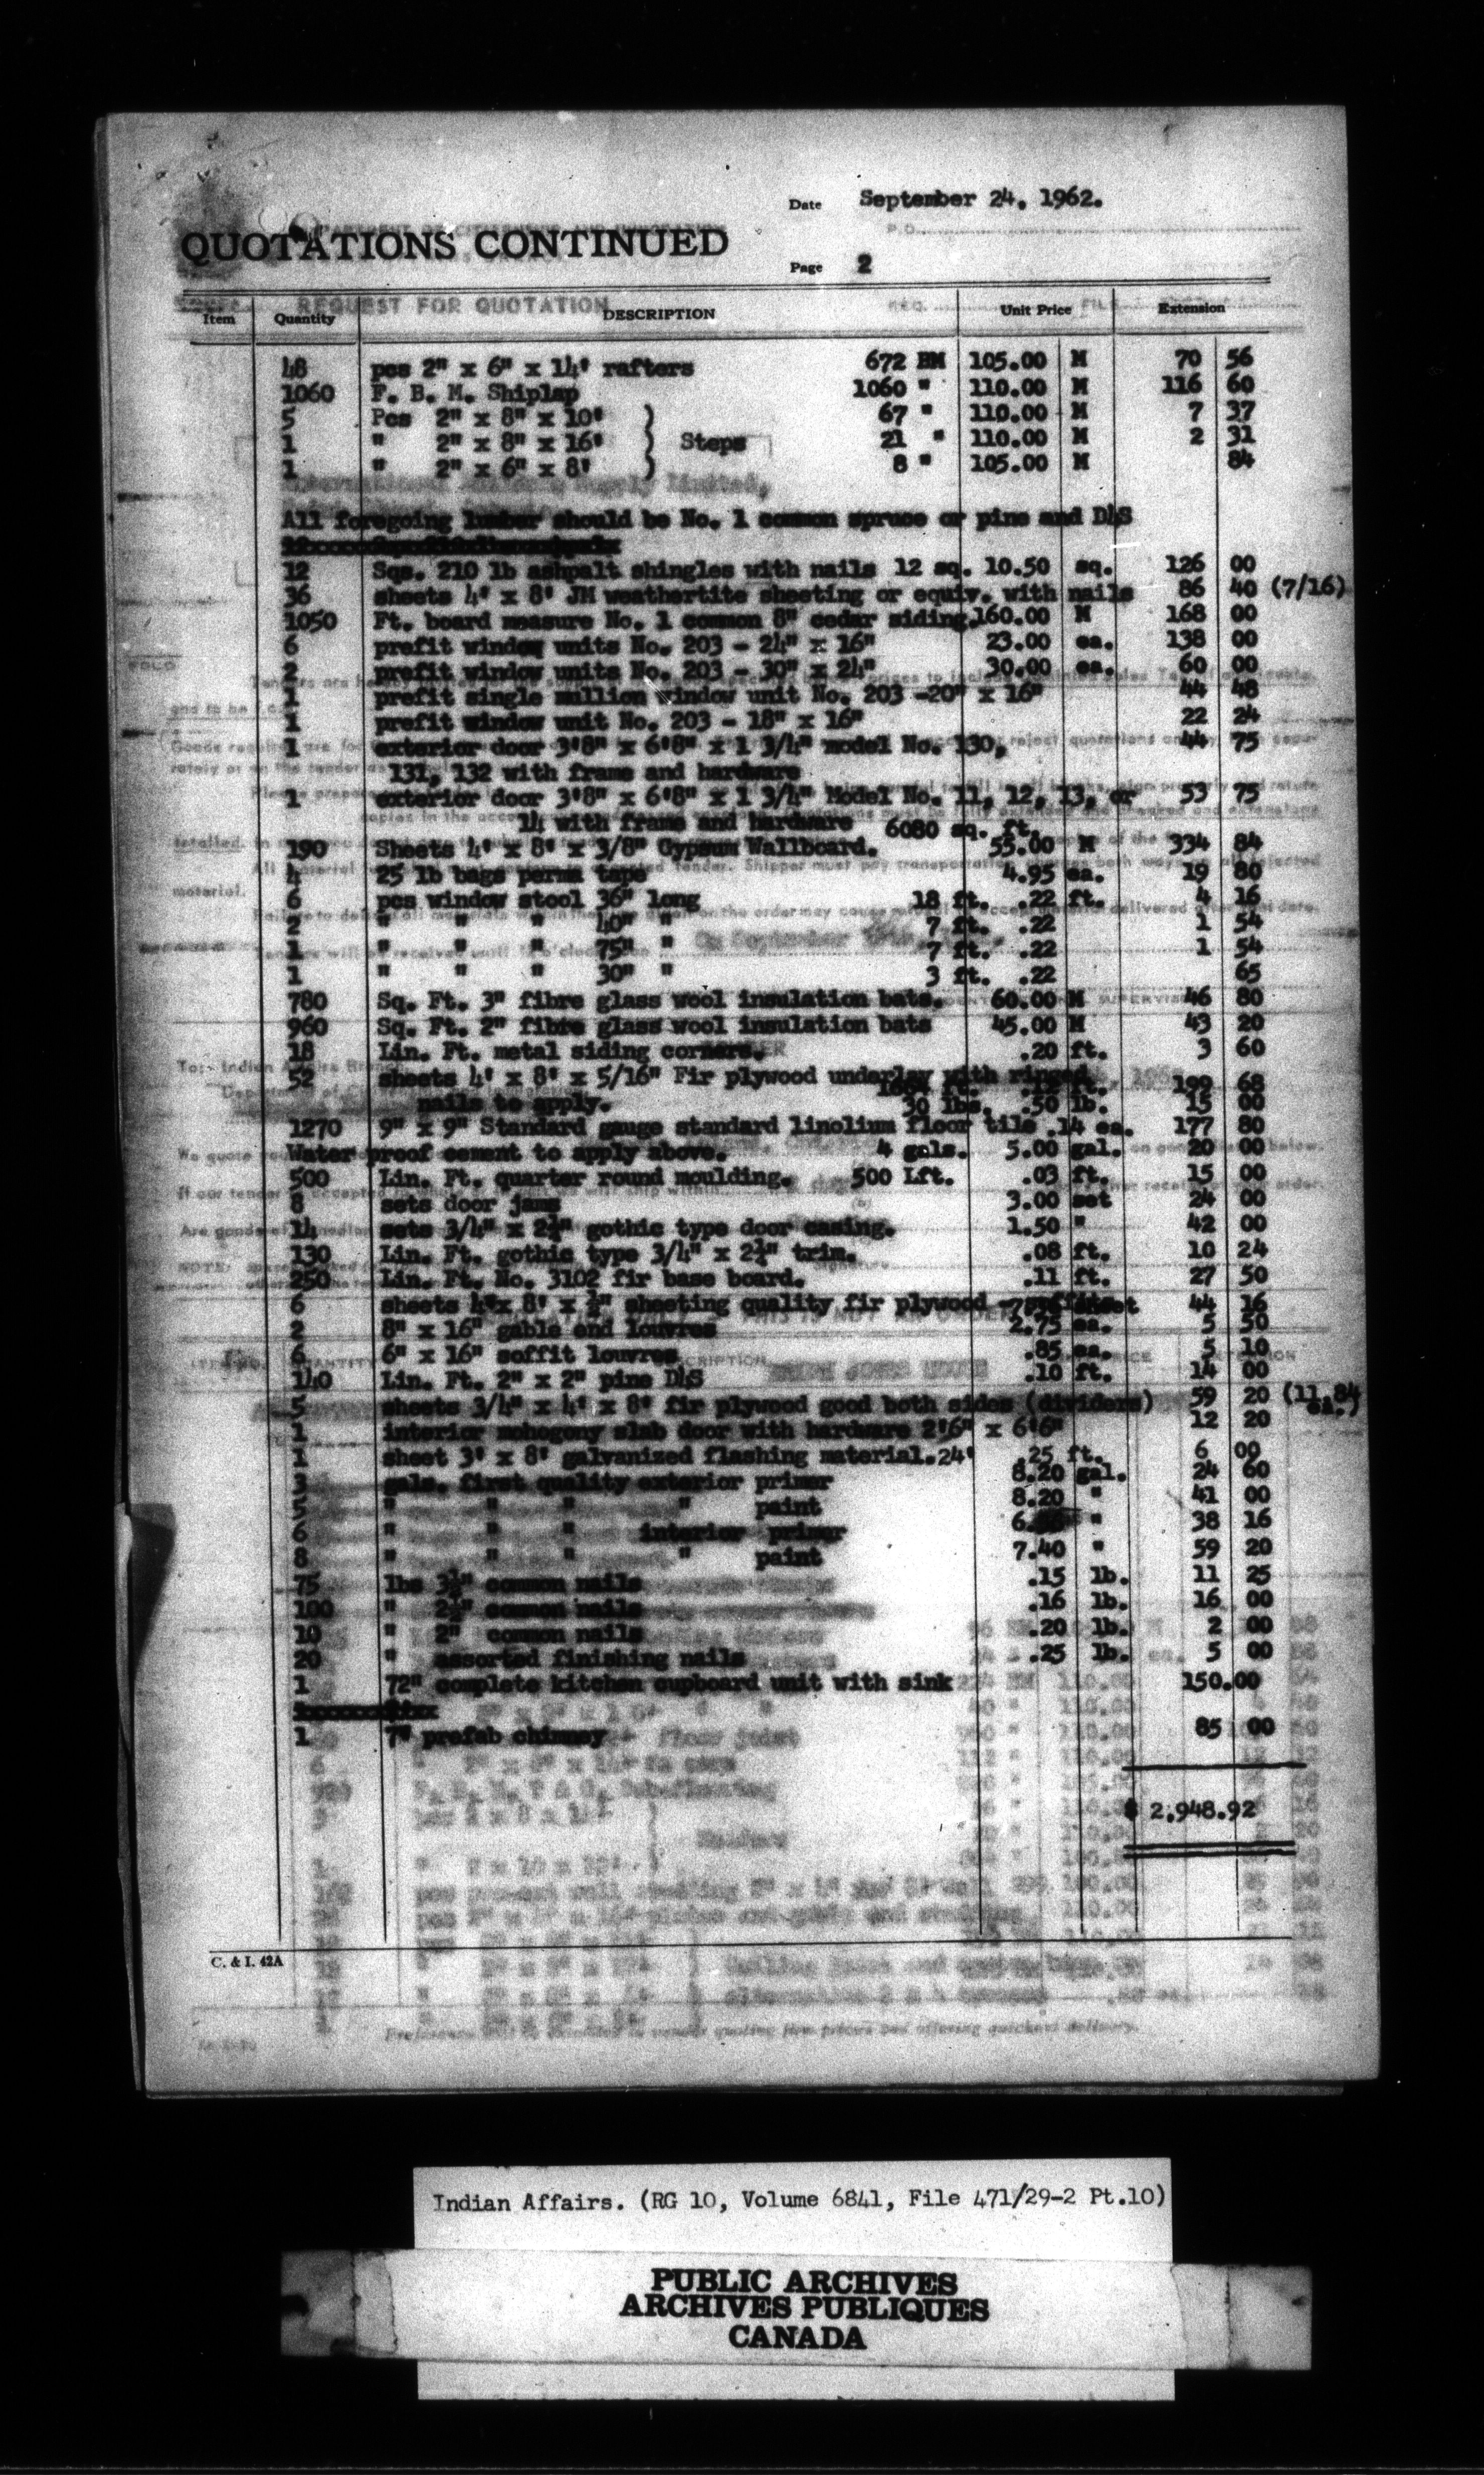 Date September 24, 1962.
QUOTATIONS CONTINUED
Page 2
REQUEST FOR QUOTATION
Item Quantity DESCRIPTION Unit Price Extension
48 pcs 2" x 6" x 14' rafters 672 BM 105.00 M 70 56
1060 F. B. M. Shiplap 1060 " 110.00 M 116 60
5 Pcs 2" x 8" x 10' ) 67 " 110.00 M 7 37
1 " 2" x 8" x 16' ) Steps 21 " 110.00 M 2 31
1 " 2" x 6" x 8' ) 8 " 105.00 M 84
All foregoing lumber should be No. 1 common spruce or pine and D4S
12 Sqs. 210 lb ashpalt shingles with nails 12 sq. 10.50 sq. 126 00
36 sheets 4' x 8' JM weathertite sheeting or equiv. with nails 86 40 (7/16)
1050 Ft. board measure No. 1 common 8" cedar siding. 160.00 M 168 00
6 prefit window units No. 203 - 24" x 16" 23.00 ea. 138 00
2 prefit window units No. 203 - 30" x 24" 30.00 ea. 60 00
1 prefit single mullion window unit No. 203 -20" x 16" 44 48
1 prefit window unit No. 203 - 18" x 16" 22 24
1 exterior door 3'8" x 6'8" x 1 3/4" model No. 130, 44 75
131, 132 with frame and hardware
1 exterior door 3'8" x 6'8" x 1 3/4" Model No. 11, 12, 13, or 53 75
14 with frame and hardware 6080 sq. ft.
190 Sheets 4' x 8' x 3/8" Gypsum Wallboard. 55.00 M 334 84
4 25 lb bags perma tape 4.95 ea. 19 80
6 pcs window stool 36" long 18 ft. .22 ft. 4 16
2 " " " 40" " 7 ft. .22 1 54
1 " " " 75" " 7 ft. .22 1 54
1 " " " 30" " 3 ft. .22 65
780 Sq. Ft. 3" fibre glass wool insulation bats. 60.00 M 46 80
960 Sq. Ft. 2" fibre glass wool insulation bats 45.00 M 43 20
18 Lin. Ft. metal siding corners. .20 ft. 3 60
52 sheets 4' x 8' x 5/16" Fir plywood underlay with ringed 199 68
nails to apply. 30 lbs. .50 lb. 15 00
1270 9" x 9" Standard gauge standard linolium floor tile .14 ea. 177 80
Water proof cement to apply above. 4 gals. 5.00 gal. 20 00
500 Lin. Ft. quarter round moulding. 500 Lft. .03 ft. 15 00
8 sets door jams 3.00 set 24 00
14 sets 3/4" x 2¼" gothic type door casing. 1.50 " 42 00
130 Lin. Ft. gothic type 3/4" x 2¼" trim. .08 ft. 10 24
250 Lin. Ft. No. 3102 fir base board. .11 ft. 27 50
6 sheets 4'x 8' x ½" sheeting quality fir plywood - 44 16
2 8" x 16" gable end louvres 2.75 ea. 5 50
6 6" x 16" soffit louvres .85 ea. 5 10
140 Lin. Ft. 2" x 2" pine D4S .10 ft. 14 00
5 sheets 3/4" x 4' x 8' fir plywood good both sides (dividers) 59 20 (11.84 ea.)
1 interior mohogony slab door with hardware 2'6" x 6'6" 12 20
1 sheet 3' x 8' galvanized flashing material.24' .25 ft. 6 00
3 gals. first quality exterior primer 8.20 gal. 24 60
5 " " " " paint 8.20 " 41 00
6 " " " interior primer 6. " 38 16
8 " " " " paint 7.40 " 59 20
75 lbs 3½" common nails .15 lb. 11 25
100 " 2½" common nails .16 lb. 16 00
10 " 2" common nails .20 lb. 2 00
20 " assorted finishing nails .25 lb. 5 00
1 72" complete kitchen cupboard unit with sink 150.00
1 7" prefab chimney 85 00
$ 2,948.92
C. & I. 42A
Indian Affairs. (RG 10, Volume 6841, File 471/29-2 Pt.10)
PUBLIC ARCHIVES
ARCHIVES PUBLIQUES
CANADA